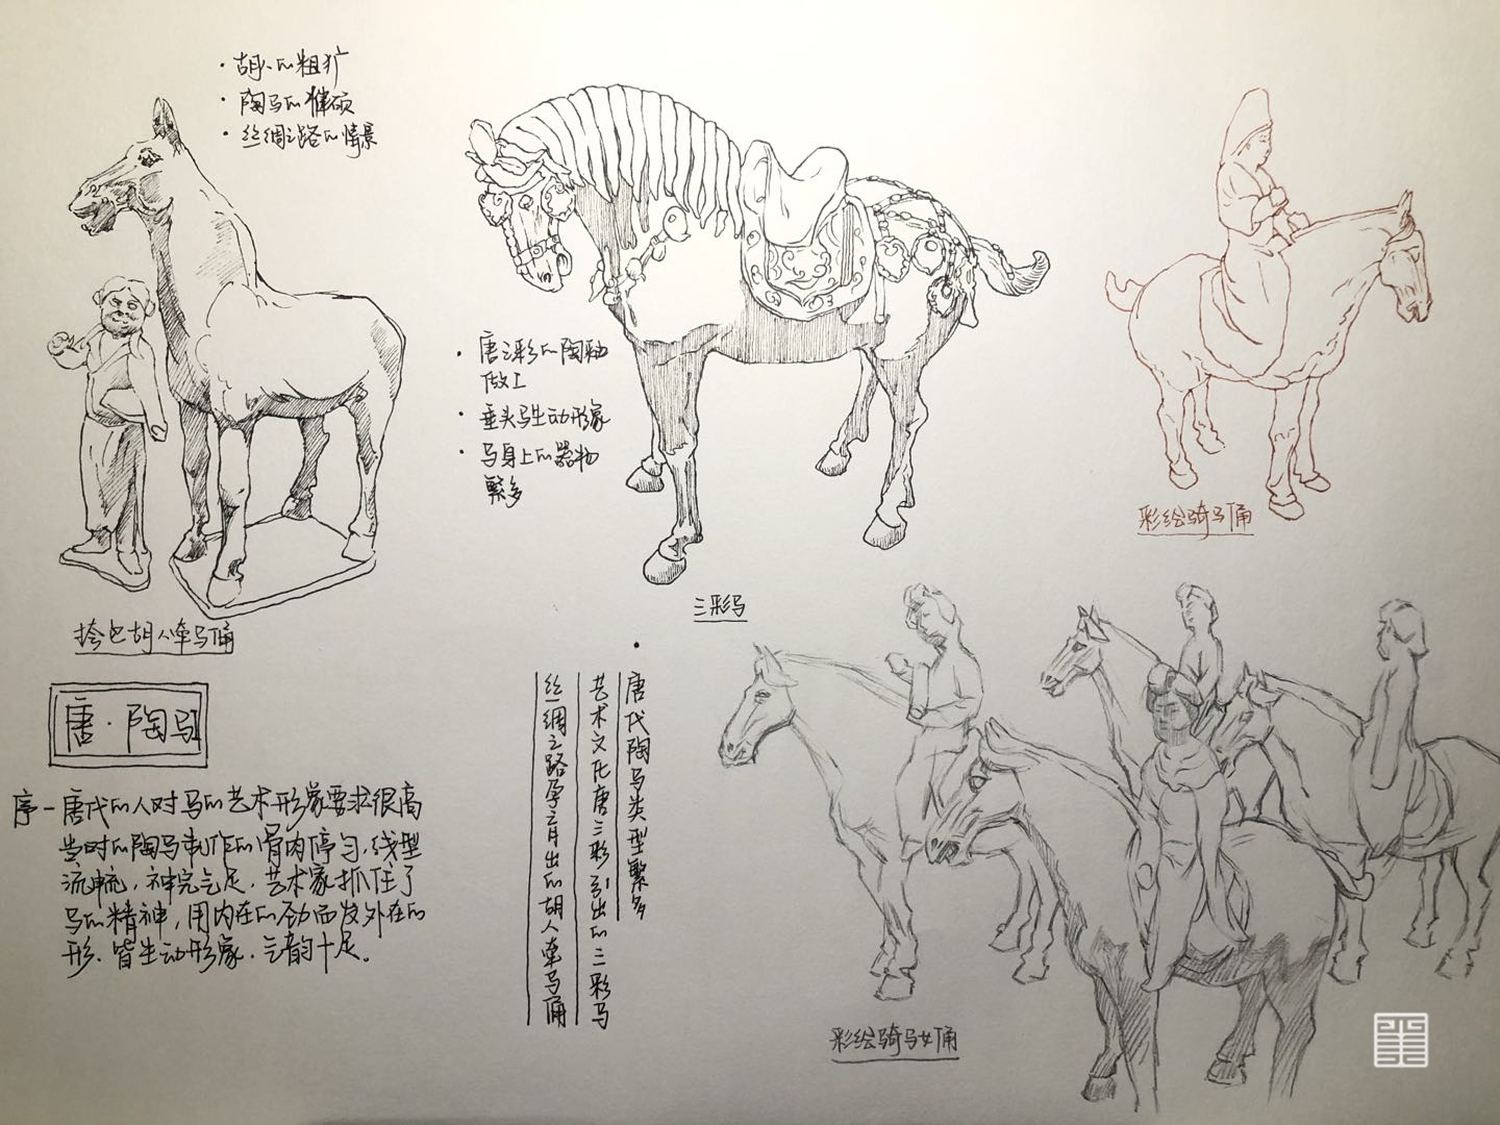 · 胡人的粗犷
· 陶马的雄硕
· 丝绸之路的情景
挎包胡人牵马俑
· 唐三彩的陶釉
做工
· 垂头马生动形象
· 马身上的器物
繁多
三彩马
彩绘骑马俑
唐·陶马
序－唐代的人对马的艺术形象要求很高
当时的陶马制作的骨肉停匀，线型
流畅，神完气足，艺术家抓住了
马的精神，用内在的劲而发外在的
形，皆生动形象，气韵十足。
· 唐代陶马类型繁多
艺术文化唐三彩引出的三彩马
丝绸之路孕育出的胡人牵马俑
彩绘骑马女俑